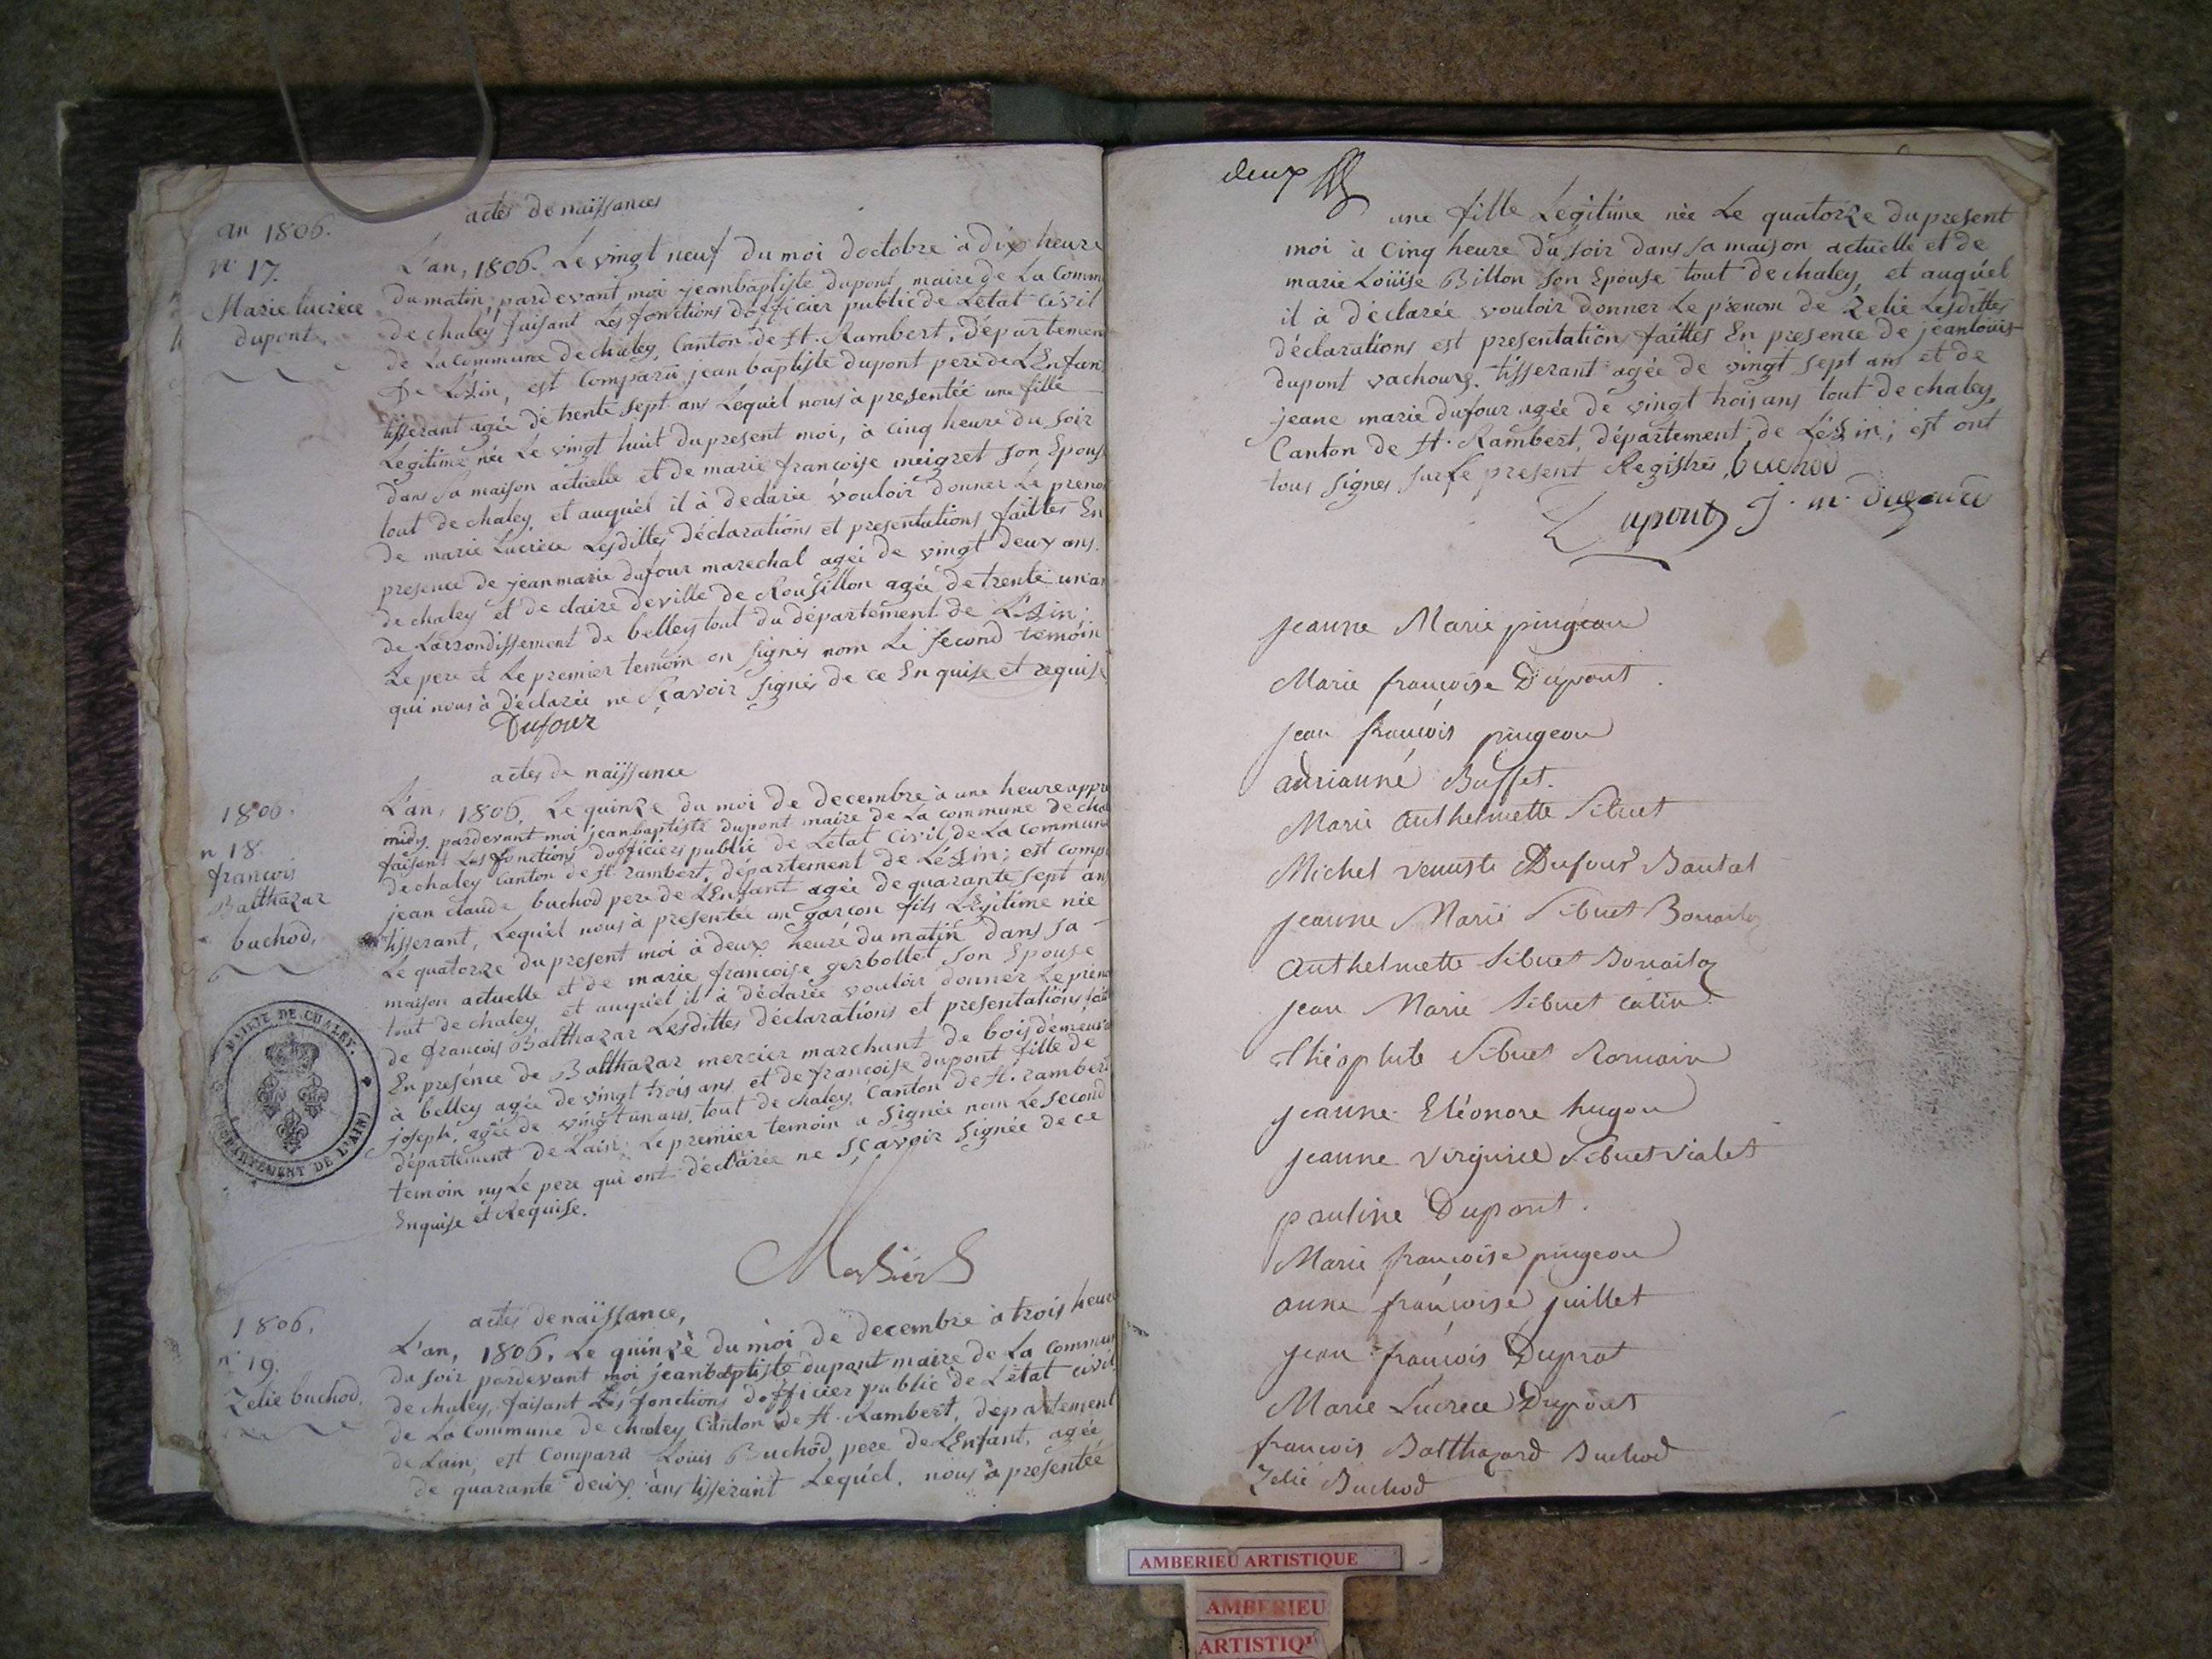 an 1806.
n° 17.
Marie lucrèce
dupont.
actes de naissances
L'an, 1806. Le vingt neuf du moi doctobre à dix heure
du matin, pardevant moi jeanbaptiste dupont maire de La Comm
de chaley faisant Les fonctions dofficier public de Létat Civil
de La Commune de chaley, Canton de St. Rambert, départemen
De LéAin, est Comparû jean baptiste dupont pere de LEnfan
tisserant agée de trente sept ans Lequél nous à presentée une fille
Legitime née Le vingt huit du present moi, à Cinq heure du soir
dans Sa maison actuelle et de marie françoise meigret son Epous
tout de chaley, et auquél il à déclarée vouloir donner Le preno
de marie Lucrèce Lesdittes déclarations et presentations faittes En
presence de jean marie dufour marechal agée de vingt deux ans.
de chaley et de claire deville de Rousillon agée de trente un an
de Larrondissement de belley tout du département de L'Ain;
Le pere et Le premier temoin on signés nom Le second temoin
qui nous à déclarée ne sçavoir signés de ce Enquise et requise
Dufour
1806.
n 18.
francois
Balthazar
buchod.
actes de naissance
L'an, 1806, Le quinze du moi de decembre à une heure appre
midy. pardevant moi jeanbaptiste dupont maire de La commune de cha
faisant Les fonctions dofficiers public de Létat Civil, de La Commune
de chaley Canton de St. rambert, département de LéAin; est comp
jean claude buchod pere de LEnfant agée de quarante sept an
tisserant, Lequél nous à presentée un garcon fils Légitime née
Le quatorze du present moi à deux heure du matin dans sa
maison actuelle et de marie françoise gerbollet son Epouse
tout de chaley, et auquél il à déclarée vouloir donner Le prén
de francois Balthazar Lesdittes déclarations et presentations fait
En presénce de Balthazar mercier marchant de bois démeur
à belley agée de vingt trois ans et de françoise dupont fille de
joseph, agée de vingt un ans, tout de chaley, Canton de St. rambert
département de Lain; Le premier temoin a signée nom Le second
temoin ny Le pere qui ont déclarée ne sçavoir signée de ce
Enquise et Requise.
MAIRIE DE CHALEY.
(DÉPARTEMENT DE L'AIN)
1806.
n° 19.
Zelie buchod.
actes de naissance,
L'an, 1806, Le quinze du moi de decembre à trois heure
du soir pardevant moi jeanbaptiste dupont maire de La Commun
de chaley, faisant Les fonctions dofficier public de Létat civil
de La Commune de chaley Canton de St. Rambert, département
de Lain; est Comparû Louis Buchod pere de LEnfant, agée
de quarante deux ans tisserant Lequél, nous à presentée
deux
une fille Légitime née Le quatorze du present
moi à Cinq heure du soir dans sa maison actuelle et de
marie Loüise Billon son Epouse tout de chaley, et auquél
il à déclarée vouloir donner Le prénom de Zelie Lesdittes
déclarations est presentations faittes En presence de jeanlouis
dupont vachourg. tisserant agée de vingt sept ans et de
jeane marie dufour agée de vingt trois ans tout de chaley,
Canton de St. Rambert, département de LéAin; est ont
tous signes sur Le present Registres, buchod
Dupont J. m. dufour
jeanne Marie pingeon
Marie françoise Dupont.
jean francois pingeon
adrianne Buffet.
Marie Anthelmette Sibuet
Michel venuste Dufour Bautat
jeanne Marie Sibuet
Anthelmette Sibuet
jean Marie Sibuet Catin
Sibuet Romain
jeanne Eléonore hugon
jeanne virginie Sibuet vialet
pauline Dupont.
Marie françoise pingeon
anne françoise juillet
jean francois Duprat
Marie Lucrèce Dupont
francois Balthazard Buchod
Zelie Buchod
AMBERIEU ARTISTIQUE
AMBERIEU
ARTISTIQU